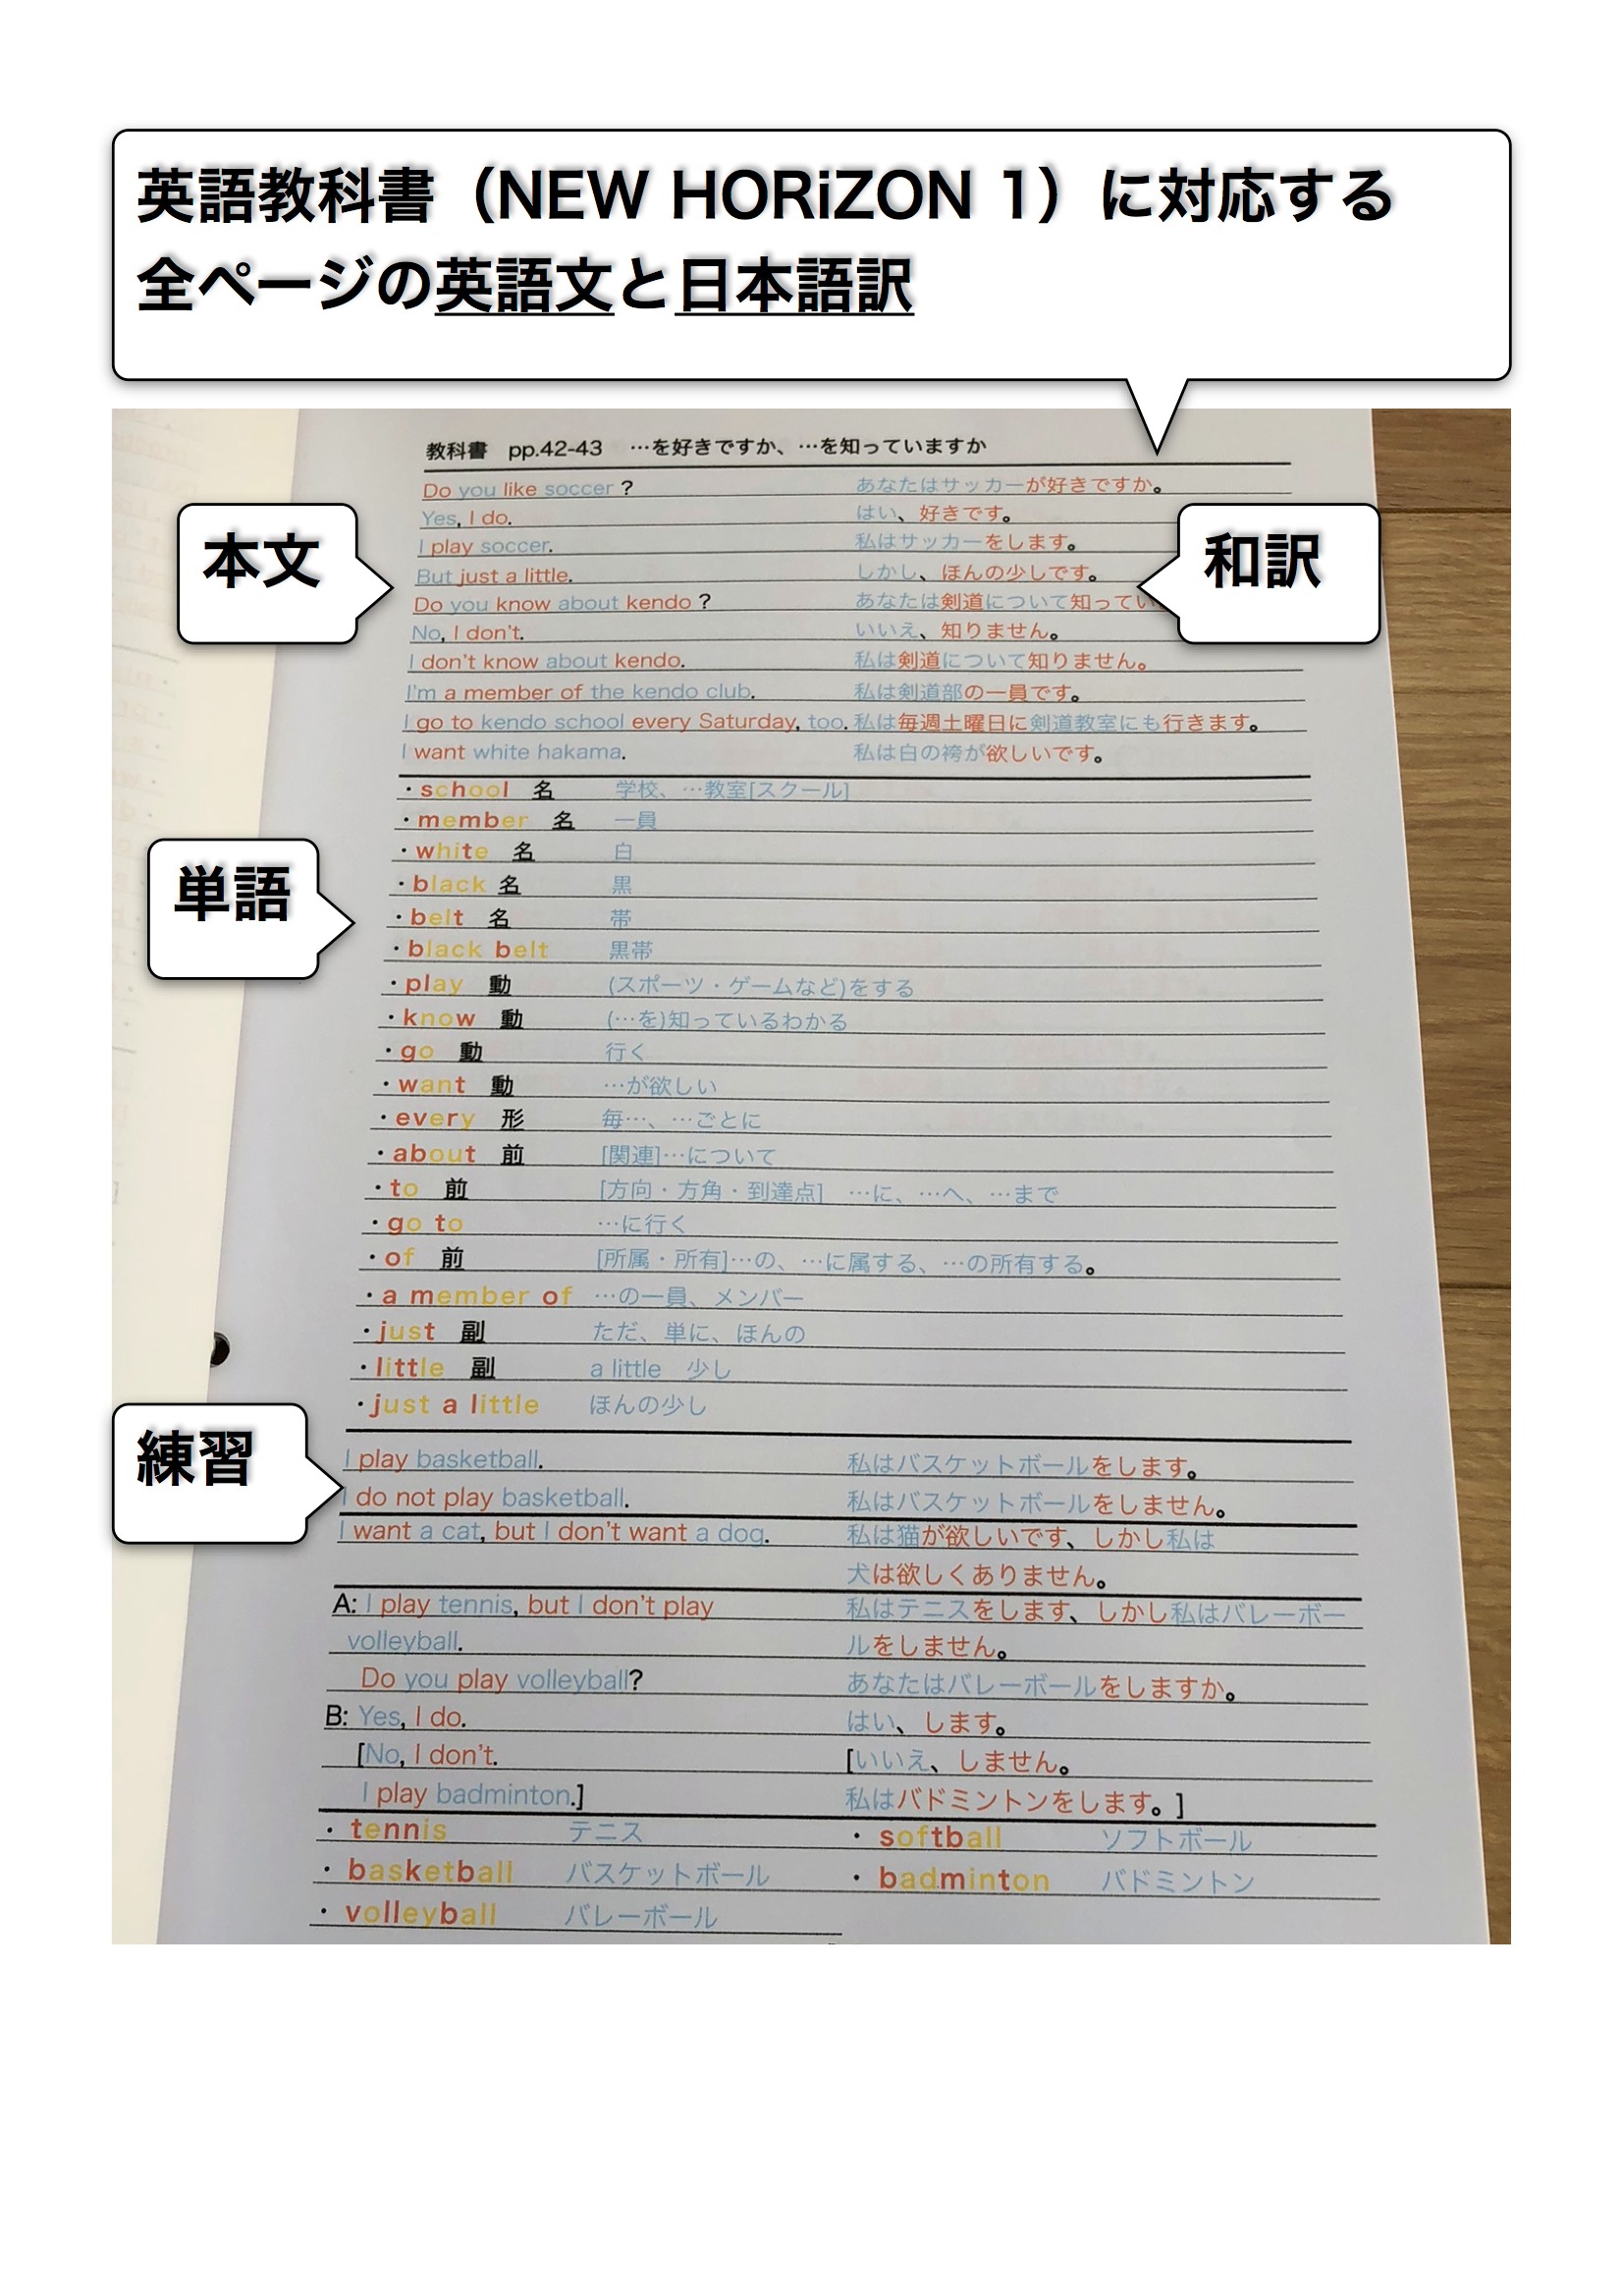 英語教科書（NEW HORiZON 1）に対応する
全ページの英語文と日本語訳
教科書 pp.42-43 …を好きですか、…を知っていますか
本文
和訳
Do you like soccer ? あなたはサッカーが好きですか。
Yes, I do. はい、好きです。
I play soccer. 私はサッカーをします。
But just a little. しかし、ほんの少しです。
Do you know about kendo ? あなたは剣道について知ってい
No, I don't. いいえ、知りません。
I don't know about kendo. 私は剣道について知りません。
I'm a member of the kendo club. 私は剣道部の一員です。
I go to kendo school every Saturday, too. 私は毎週土曜日に剣道教室にも行きます。
I want white hakama. 私は白の袴が欲しいです。
単語
・school 名 学校、…教室[スクール]
・member 名 一員
・white 名 白
・black 名 黒
・belt 名 帯
・black belt 黒帯
・play 動 (スポーツ・ゲームなど)をする
・know 動 (…を)知っているわかる
・go 動 行く
・want 動 …が欲しい
・every 形 毎…、…ごとに
・about 前 [関連]…について
・to 前 [方向・方角・到達点] …に、…へ、…まで
・go to …に行く
・of 前 [所属・所有]…の、…に属する、…の所有する。
・a member of …の一員、メンバー
・just 副 ただ、単に、ほんの
・little 副 a little 少し
・just a little ほんの少し
練習
I play basketball. 私はバスケットボールをします。
I do not play basketball. 私はバスケットボールをしません。
I want a cat, but I don't want a dog. 私は猫が欲しいです、しかし私は
犬は欲しくありません。
A: I play tennis, but I don't play 私はテニスをします、しかし私はバレーボー
volleyball. ルをしません。
Do you play volleyball? あなたはバレーボールをしますか。
B: Yes, I do. はい、します。
[No, I don't. [いいえ、しません。
I play badminton.] 私はバドミントンをします。]
・tennis テニス ・softball ソフトボール
・basketball バスケットボール ・badminton バドミントン
・volleyball バレーボール